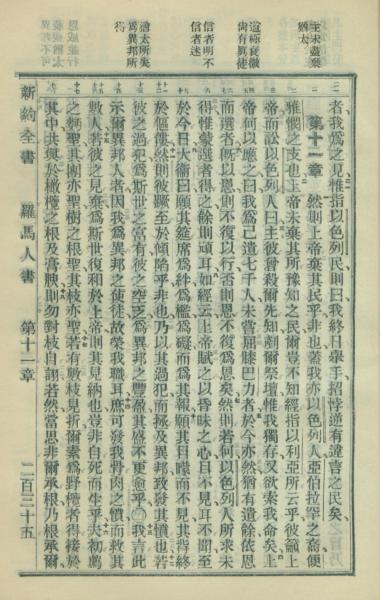 主未盡棄
猶太
道極衰微
尚有真徒
信者明不
信者迷
猶太所失
為異邦所
得
者我為之見惟指以色列民則曰我終日舉手招悖逆有違言之民矣
第十一章 然則上帝棄其民乎非也蓋我亦以色列人亞伯拉罕之裔便
雅憫之支也上帝未棄其所豫知之民爾豈不知經指以利亞所云乎彼籲上
帝而訟以色列人曰主彼曾殺爾先知剷爾祭壇惟我獨存又欲索我命矣上
帝何以應之曰我爲己遺七千人未嘗屈膝巴力者於今亦然猶有遺餘依恩
而選者既以恩則不復以行否則恩不復爲恩矣然則若何以色列人所求未
得惟蒙選者得之餘則頑耳如經云上帝賦之以昏昧之心目不見耳不聞至
於今日大衞曰願其筵席爲絆爲檻爲礙而爲其報願其目矇而不見其背終
於傴僂然則彼蹶至於傾陷乎非也乃以其過犯而拯及異邦致發其憤也若
彼之過犯爲斯世之富有彼之空乏爲異邦之豐盈其盛不更愈乎〇我言此
示爾異邦人者因我爲異邦之使徒故榮我職耳庶可發我骨肉之憤而救其
數人若彼之見棄爲斯世復和於上帝則其見納也豈非自死而生乎夫初薦
之麪聖其團亦聖樹之根聖其枝亦聖若有數枝見折爾素爲野橄者得接於
其中共與於橄欖之根及膏腴則勿對枝自詡若然當思非爾承根乃根承爾
新約全書 羅馬人書 第十一章 二百三十五